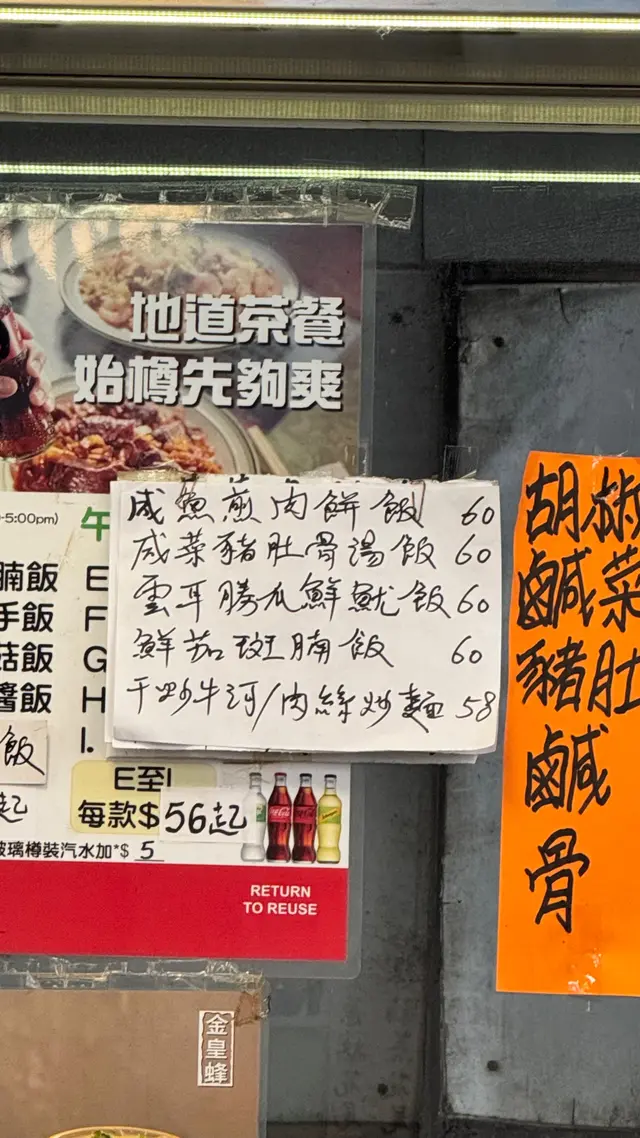 地道茶餐
始樽先夠爽
-5:00pm)
午
腩飯
手飯
菇飯
醬飯
飯
起
E
F
G
H
I.
咸魚煎肉餅飯 60
咸菜豬肚骨湯飯 60
雲耳勝瓜鮮魷飯 60
鮮茄斑腩飯 60
干炒牛河/肉絲炒麵 58
E至I
每款$56起
玻璃樽裝汽水加*$ 5
RETURN
TO REUSE
胡椒
鹹菜
豬肚
鹹
骨
金皇蜂